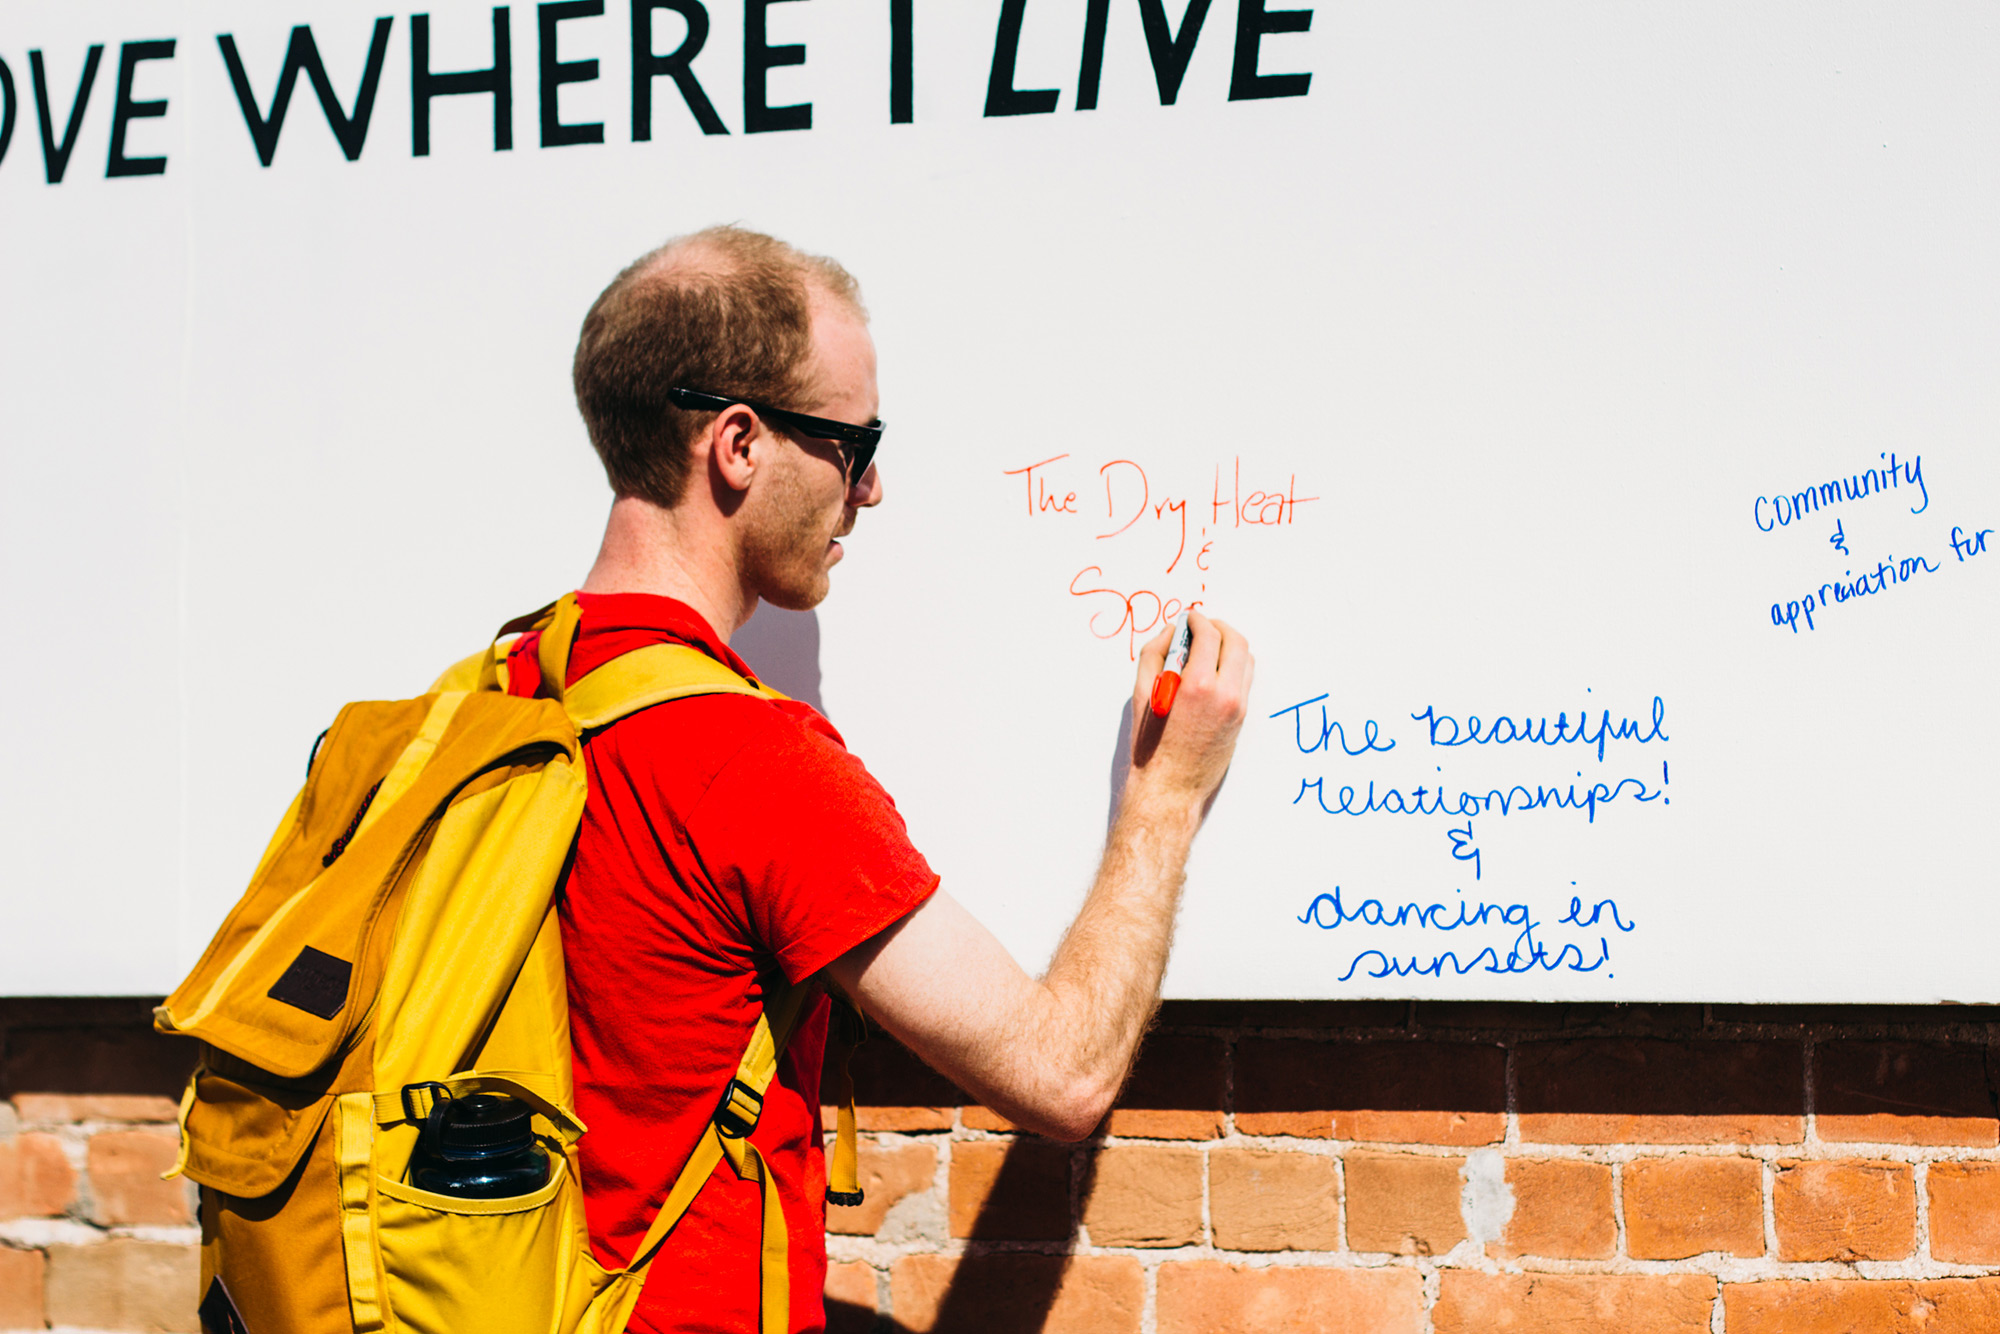 OVE WHERE I LIVE
The Dry Heat
&
Spe
community
&
appreciation for
The beautiful
relationships!
&
dancing in
sunsets!